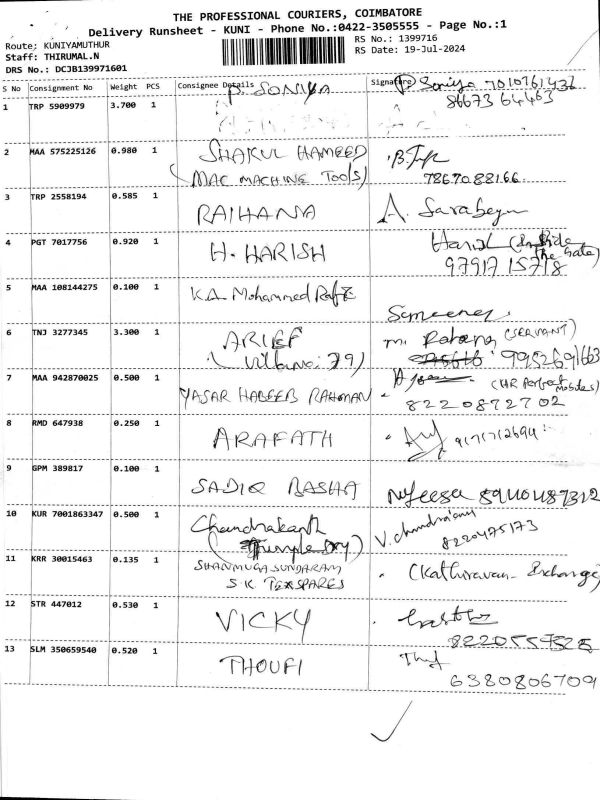 THE PROFESSIONAL COURIERS, COIMBATORE
Delivery Runsheet - KUNI - Phone No.:0422-3505555 - Page No.:1
Route; KUNIYAMUTHUR
RS No.: 1399716
Staff: THIRUMAL.N
RS Date: 19-Jul-2024
DRS No.: DCJB139971601
S No Consignment No Weight PCS Consignee Details Signature
1 TRP 5909979 3.700 1 P. SONIYA Soniya 7010761432
86673 64463
2 MAA 575225126 0.980 1 SHAKUL HAMEED
(MAC MACHINE TOOLS) 7867088166
3 TRP 2558194 0.585 1 RAIHANA A. Sarabegum
4 PGT 7017756 0.920 1 H. HARISH The Gate)
97917 15718
5 MAA 108144275 0.100 1 K.A. Mohammed
6 TNJ 3277345 3.300 1 ARIEF M. (SERVANT)
79) 9952691663
7 MAA 942870025 0.500 1 YASAR HABEEB RAHMAN (HR Perfect Mobiles)
8220872702
8 RMD 647938 0.250 1 ARAFATH 9171712694
9 GPM 389817 0.100 1 SADIQ BASHA Nafeesa
10 KUR 7001863347 0.500 1 Chandrakanth V.
8220475173
11 KRR 30015463 0.135 1 SHANMUGA SUNDARAM (Kathiravan-
S.K TEXSPARES
12 STR 447012 0.530 1 VICKY
13 SLM 350659540 0.520 1 THOUFI
6380806709